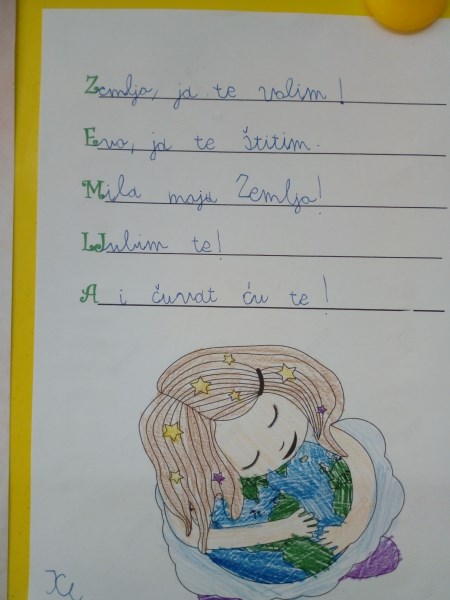 Zemljo, ja te volim!
Evo, ja te štitim.
Mila moja Zemljo!
LJubim te!
A i čuvat ću te!